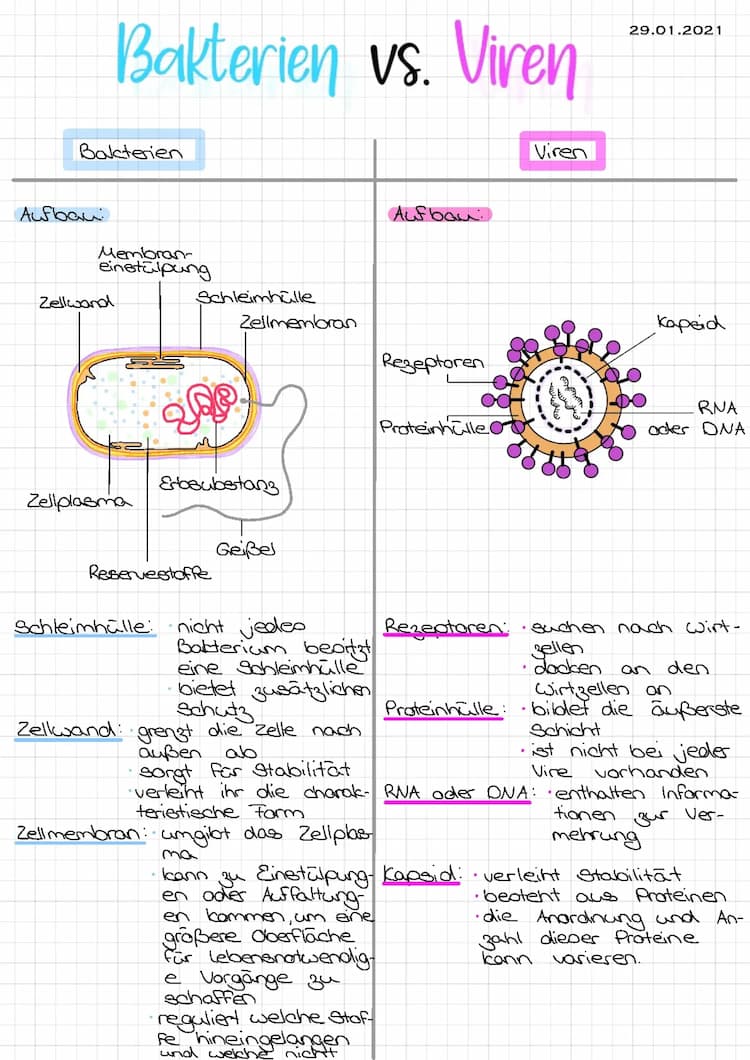 29.01.2021
Bakterien vs. Viren
Bakterien
Viren
Aufbau:
Membran-
einstülpung
Zellwand
Schleimhülle
Zellmembran
Zellplasma
Erbsubstanz
Geißel
Reservestoffe
Schleimhülle: · nicht jedes
Bakterium besitzt
eine Schleimhülle
· bietet zusätzlichen
Schutz
Zellwand: · grenzt die Zelle nach
außen ab
· sorgt für Stabilität
· verleiht ihr die charak-
teristische Form
Zellmembran: · umgibt das Zellplas-
ma
· kann zu Einstülpung-
en oder Auffaltung-
en kommen, um eine
größere Oberfläche
für lebensnotwendig-
e Vorgänge zu
schaffen
· reguliert welche Stof-
fe hineingelangen
und welche nicht
Aufbau:
Kapsid
Rezeptoren
RNA
oder DNA
Proteinhülle
Rezeptoren: · suchen nach Wirt-
zellen
· docken an den
Wirtzellen an
Proteinhülle: · bildet die äußerste
Schicht
· ist nicht bei jeder
Vire vorhanden
RNA oder DNA: · enthalten Informa-
tionen zur Ver-
mehrung
Kapsid: · verleiht Stabilität
· besteht aus Proteinen
· die Anordnung und An-
zahl dieser Proteine
kann varieren.